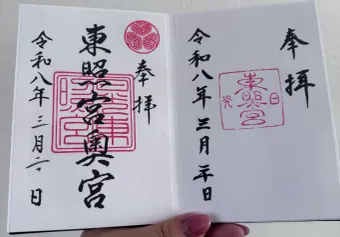 奉拝
東照宮
日光
令和八年三月二十日
奉拝
東照宮奥宮
令和八年三月二十日